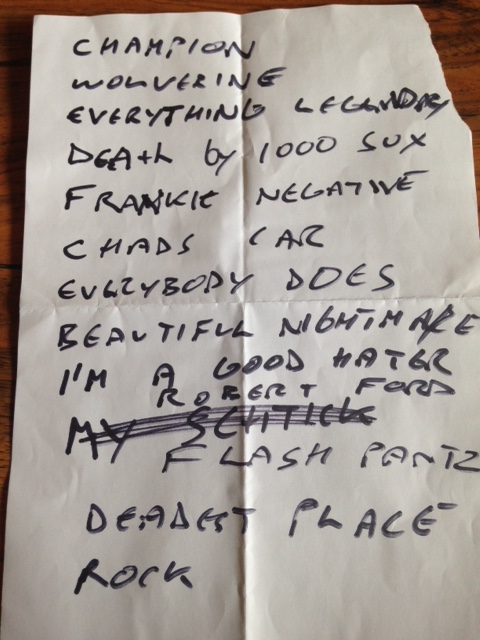 CHAMPION
WOLVERINE
EVERYTHING LEGENDARY
DEAth by 1000 SUX
FRANKIE NEGATIVE
CHADS CAR
EVERYBODY DOES
BEAUTIFUL NIGHTMARE
I'M A GOOD HATER
ROBERT FORD
MY SCHTICK
FLASH PANTZ
DEADEST PLACE
ROCK